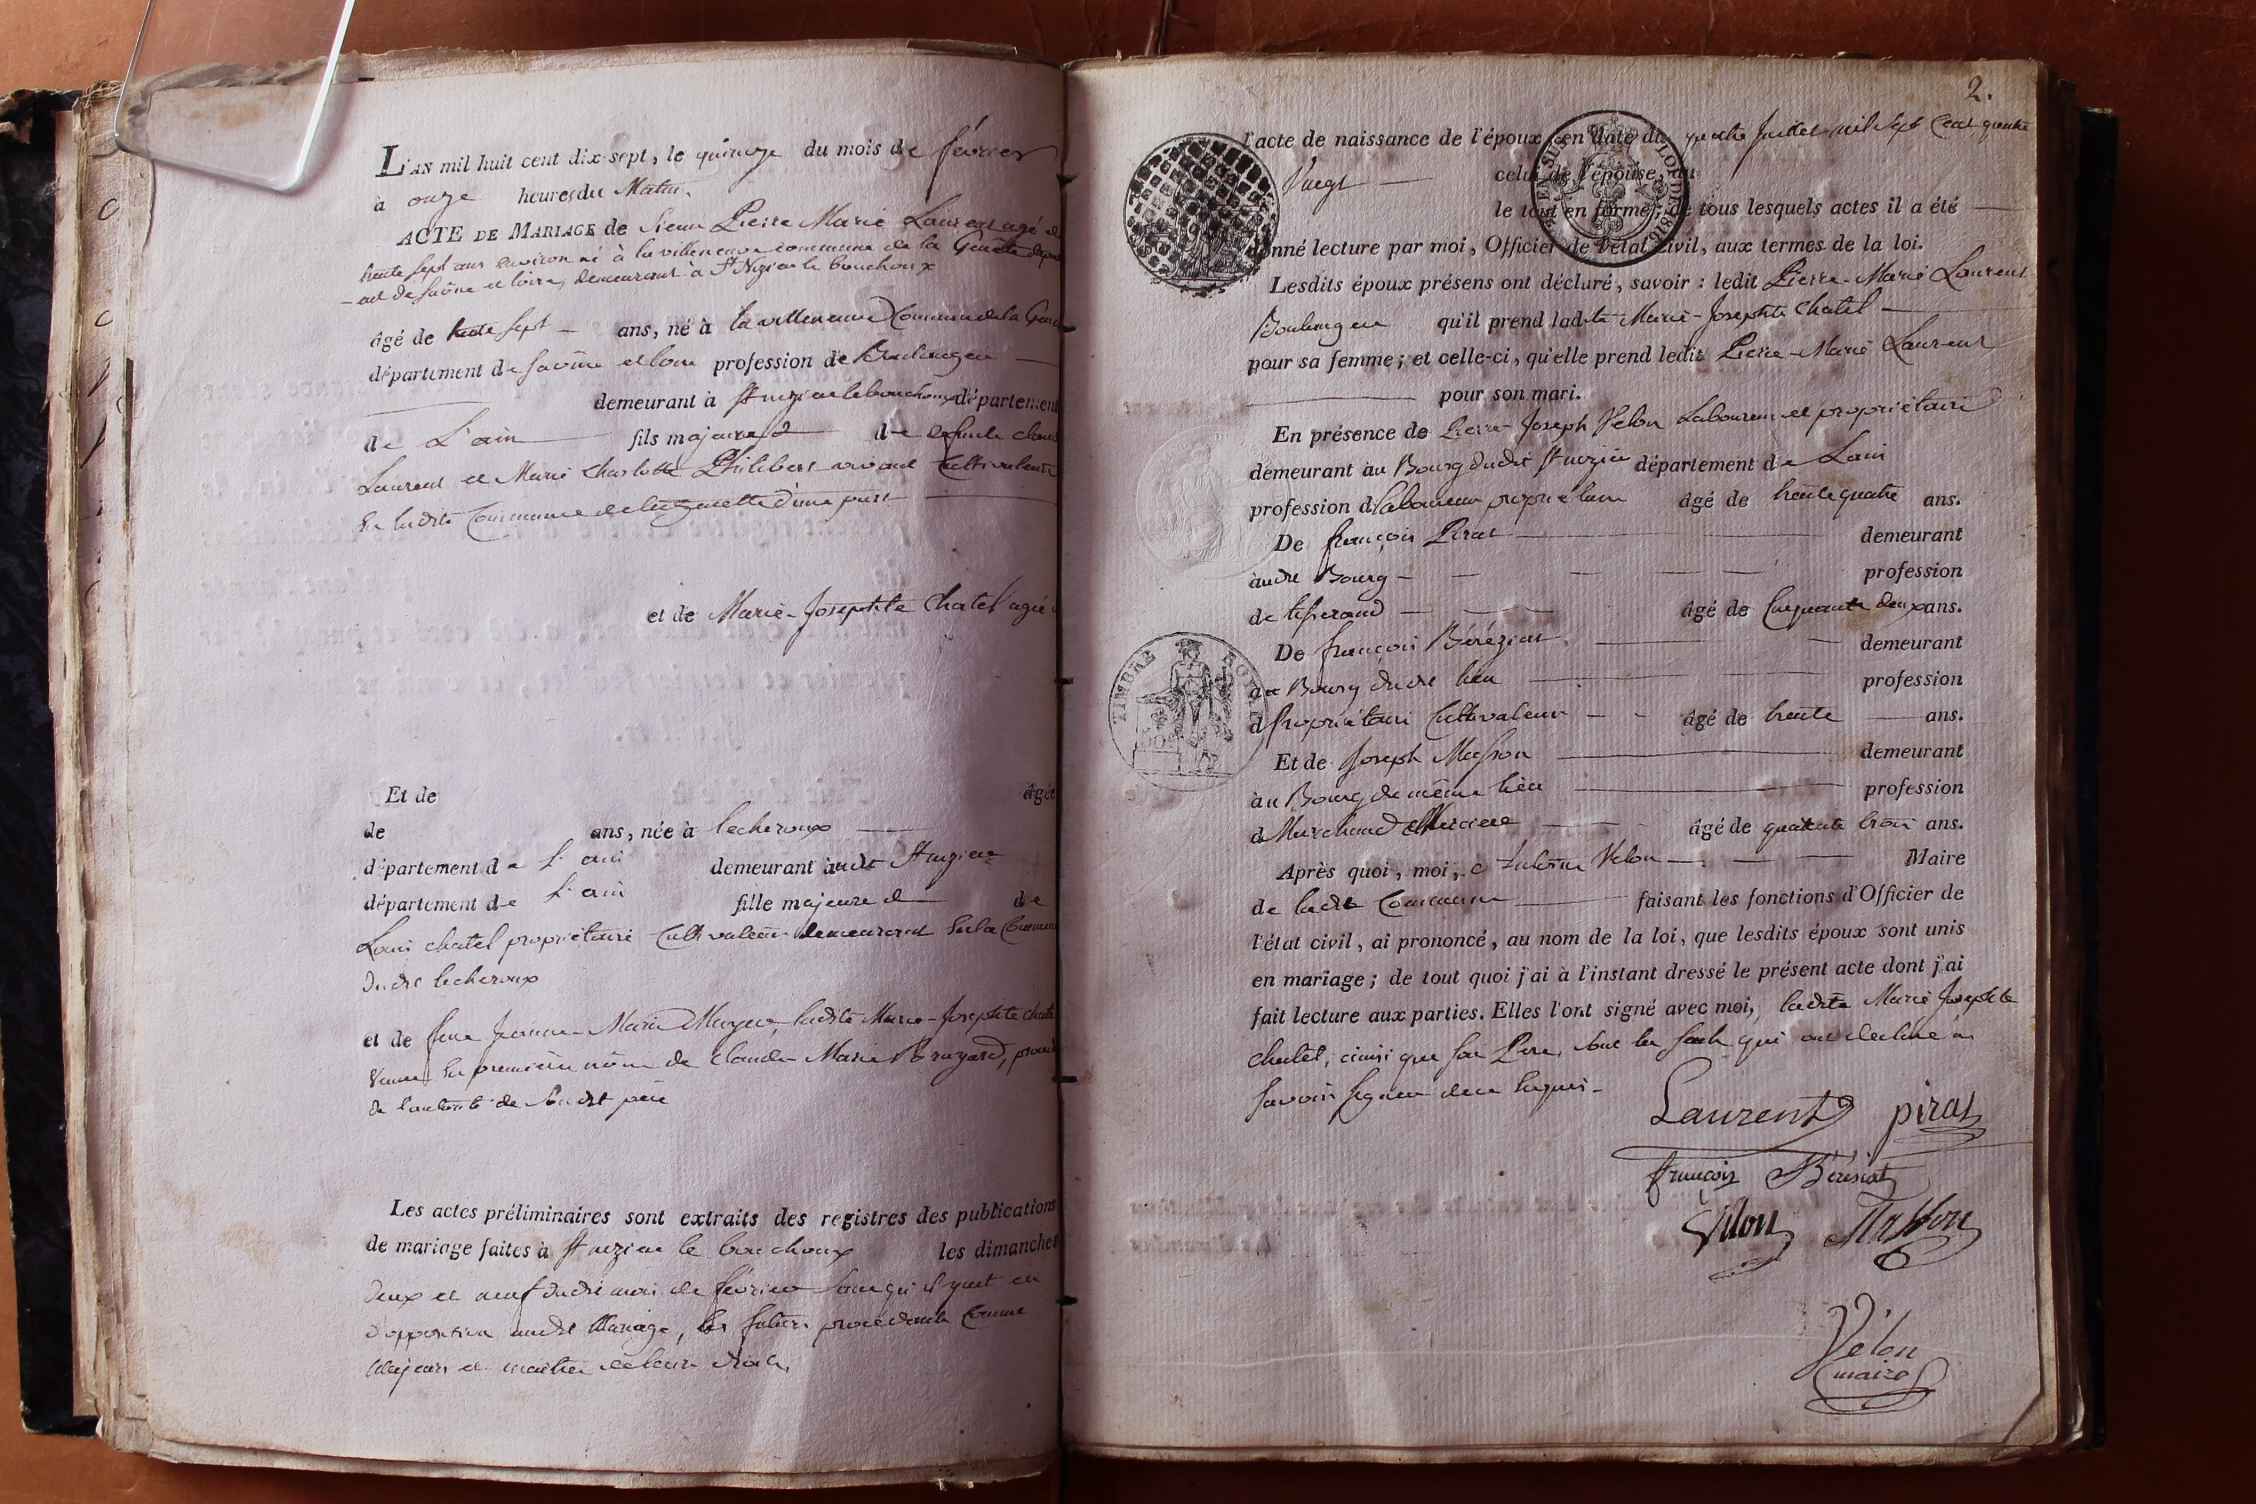 L'AN mil huit cent dix-sept, le quinze du mois de février
à onze heures du Matin.
ACTE DE MARIAGE de Sieur Pierre Marie Laurent agé de
trente sept ans environ né à la villeneuve commune de la Genette
de Saône et loire, demeurant à St Nizier le bouchoux
âgé de trente sept - ans, né à la villeneuve Commune de la
département de Saône et loire profession de Boulanger
demeurant à St nizier le bouchoux département
de L'ain fils majeur de
Laurent et Marie Charlotte Philibert vivant Cultivateurs
En ladite Commune de la genette d'une part
et de Marie-Josephte Chatel agée
Et de âgée
de ans, née à lecheroux
département de L'ain demeurant audit St nizier
département de L'ain fille majeure de
Louis chatel propriétaire Cultivateur demeurant Sur la Commune
dudit lecheroux
et de feue Jeanne-Marie ladite Marie-Josephte chatel
Veuve En premiere nôce de Claude-Marie
de l'autorité de Sondit père
Les actes préliminaires sont extraits des registres des publications
de mariage faites à St nizier le bouchoux les dimanches
deux et neuf dudit mois de février Sans qu'il y ait eu
d'opposition audit Mariage, les futurs procédants Comme
Majeurs et maitres de leurs droits,
2.
l'acte de naissance de l'époux, en date du quatre Juillet mil sept Cent quatre
Vingt celui de l'épouse, du
le tout en forme; de tous lesquels actes il a été
donné lecture par moi, Officier de l'état civil, aux termes de la loi.
Lesdits époux présens ont déclaré, savoir : ledit Pierre-Marie Laurent
Boulanger qu'il prend ladite Marie-Josephte Chatel
pour sa femme; et celle-ci, qu'elle prend ledit Pierre-Marie Laurent
pour son mari.
En présence de Pierre Joseph Velon Laboureur et propriétaire
demeurant au Bourg dudit St nizier département de Lain
profession de laboureur propriétaire âgé de trente quatre ans.
De françois Pirat demeurant
audit Bourg - profession
de tisserand âgé de Cinquante deux ans.
De françois Béréziat demeurant
au Bourg dudit lieu profession
de propriétaire Cultivateur - âgé de trente ans.
Et de Joseph Masson demeurant
au Bourg du même lieu profession
de Marchand Mercier âgé de quarante trois ans.
Après quoi, moi, Antoine Velon Maire
de ladite Commune faisant les fonctions d'Officier de
l'état civil, ai prononcé, au nom de la loi, que lesdits époux sont unis
en mariage; de tout quoi j'ai à l'instant dressé le présent acte dont j'ai
fait lecture aux parties. Elles l'ont signé avec moi, ladite Marie Josephte
chatel, ainsi que son Pere, sont les seuls qui ont déclaré ne
Savoir Signer de ce Enquis -
Laurent pirat
françois Béréziat
Vélon Masson
Vélon
maire
TIMBRE ROYAL